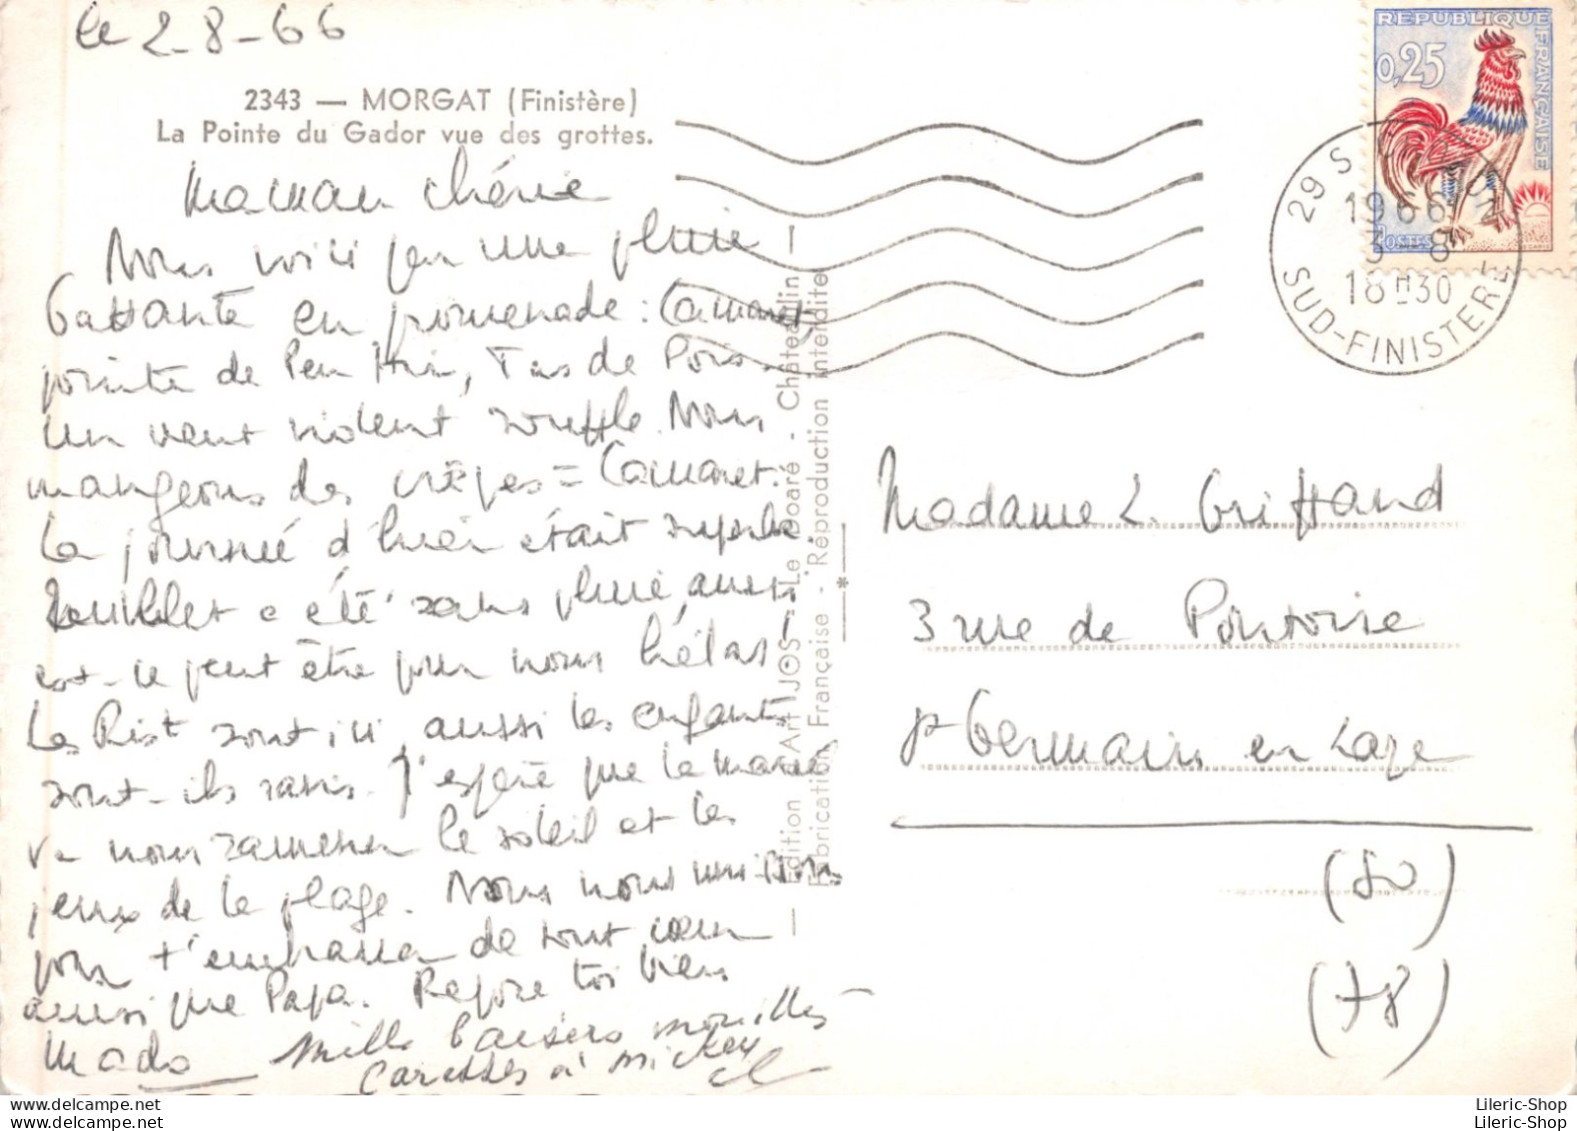 Le 2-8-66
2343 — MORGAT (Finistère)
La Pointe du Gador vue des grottes.
Maman chérie
Nous voici par une pluie
battante en promenade : Camaret,
pointe de Pen Hir, Tas de Pois.
Un vent violent souffle. Nous
mangeons des crêpes = Camaret.
La journée d'hier était superbe
Juillet a été sans pluie, aussi
est-ce peut être pour nous hélas!
Les Rist sont ici, aussi les enfants
sont-ils ravis. J'espère que la marée
va nous ramener le soleil et les
jeux de la plage. Nous nous unissons
pour t'embrasser de tout cœur
ainsi que Papa. Repose toi bien
Mado
Mille baisers mouillés
caresses à Mickey
Edition d'Art "JOS" Le Doaré - Châteaulin -
Fabrication Française - Reproduction interdite
REPUBLIQUE FRANÇAISE
0,25
POSTES
29 S
1966
3-8
18H30
SUD-FINISTERE
Madame L. Griffand
3 rue de Pontoise
St Germain en Laye
(80)
(78)
Lileric-Shop
Lileric-Shop
Lileric-Shop
Lileric-Shop